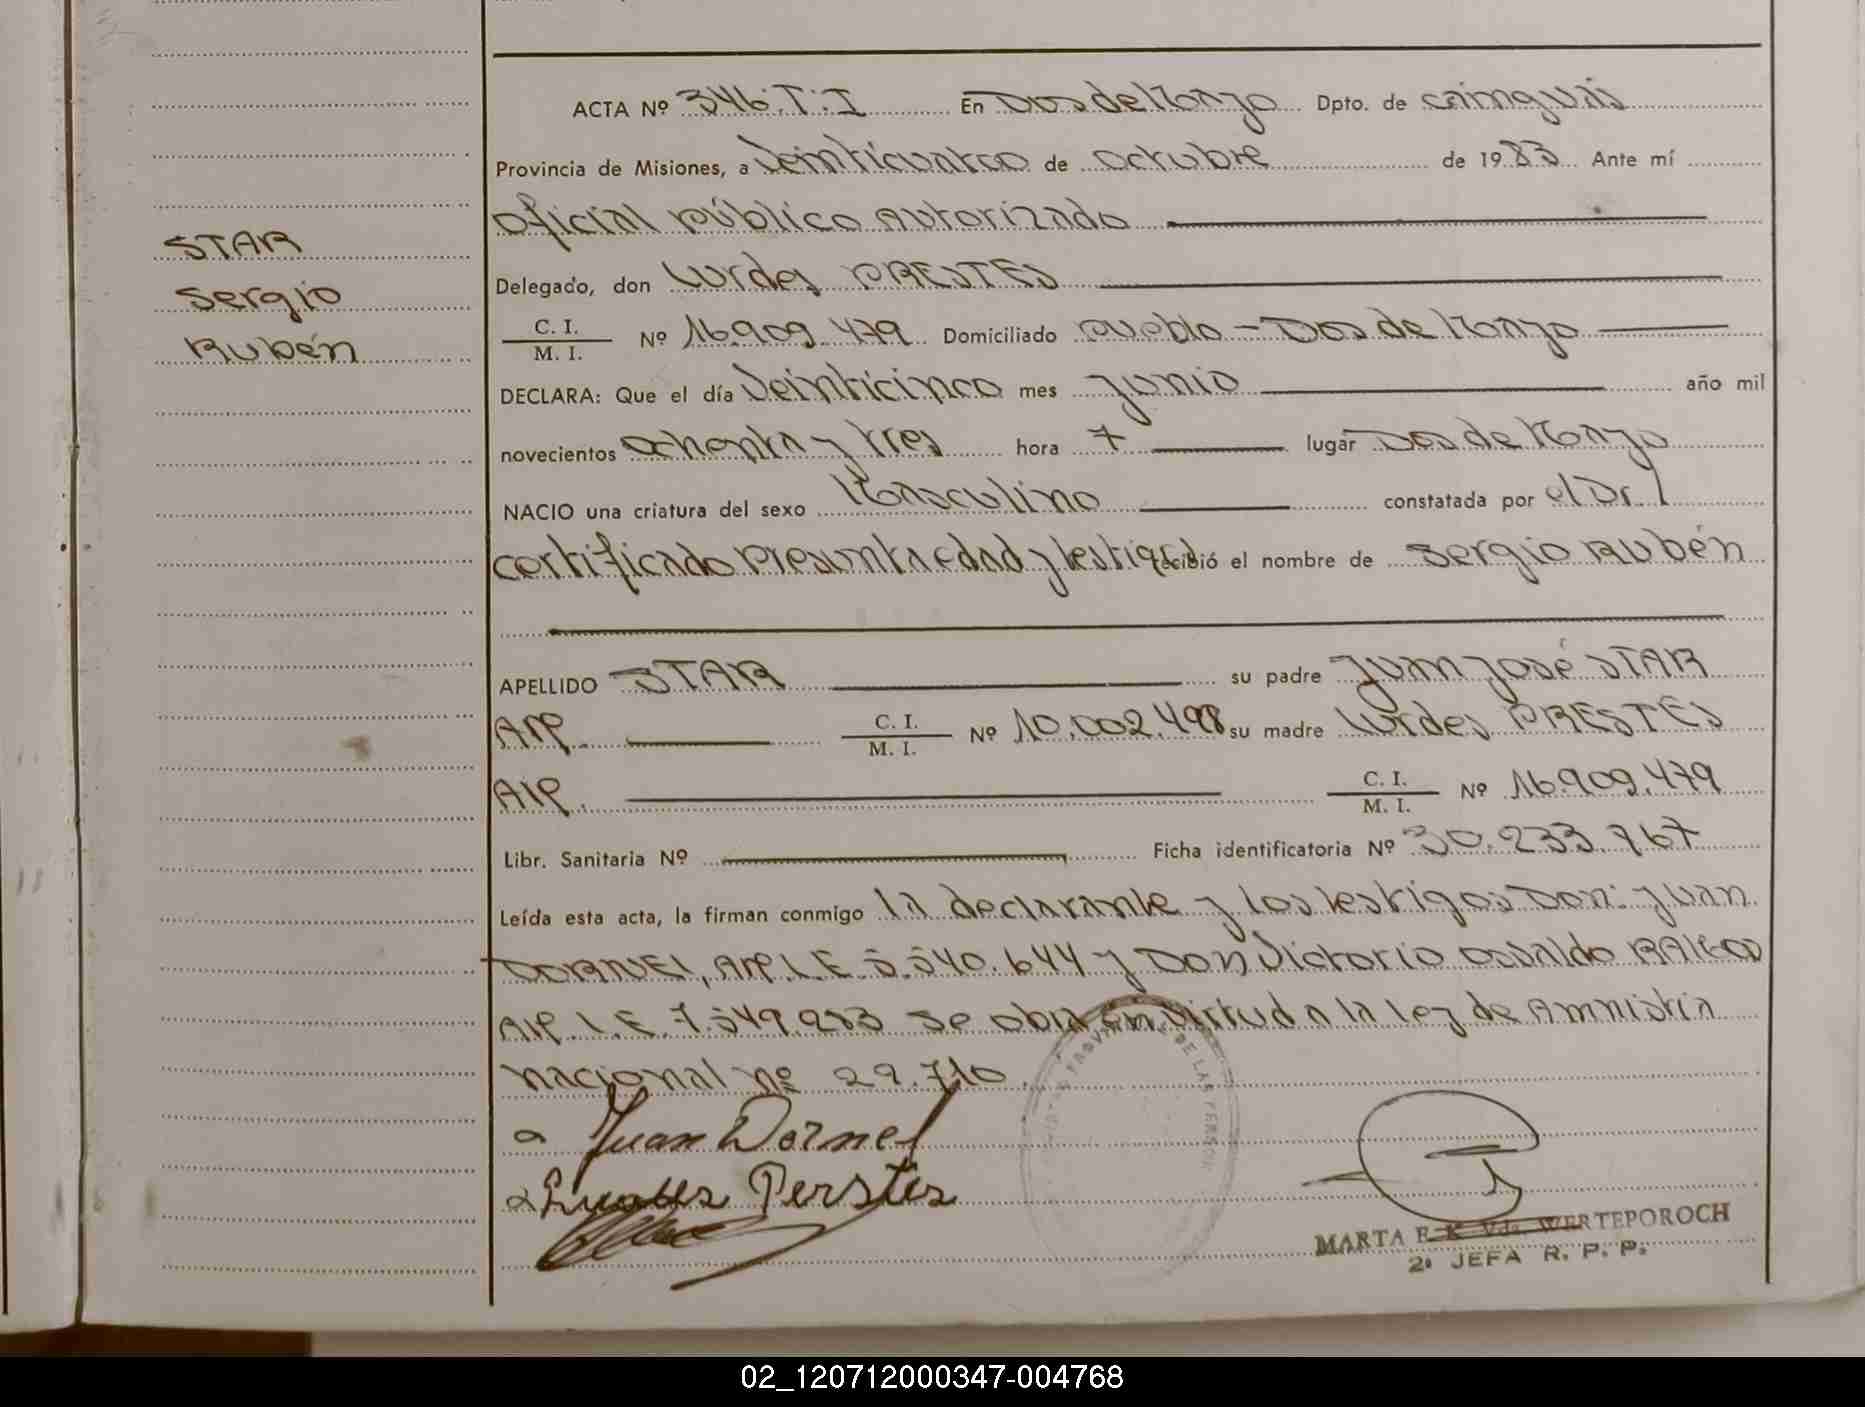 ACTA Nº 346.T.I En Dos de Mayo Dpto. de cainguás
Provincia de Misiones, a Veinticuatro de octubre de 1983 Ante mí
oficial público autorizado
STAR
Delegado, don Lurdes PRESTES
Sergio
C. I. / M. I. Nº 16.909.479 Domiciliado pueblo - Dos de Mayo
Rubén
DECLARA: Que el día Veinticinco mes junio año mil
novecientos ochenta y tres hora 7 lugar Dos de Mayo
NACIO una criatura del sexo Masculino constatada por el Dr.
certificado presunta edad y testig recibió el nombre de Sergio Rubén
APELLIDO STAR su padre Juan José STAR
Arg. C. I. / M. I. Nº 10.002.498 su madre Lurdes PRESTES
Arg. C. I. / M. I. Nº 16.909.479
Libr. Sanitaria Nº Ficha identificatoria Nº 30.233.767
Leída esta acta, la firman conmigo la declarante y los testigos Don: Juan
DORNEL, Arg. L.E. 5.540.644 y Don Victorio osvaldo
Arg. L.E. 7.549.283 se obra en virtud a la ley de Amnistia
nacional nº 22.710.
Juan Dornel
Perstes
MARTA E. K. Vda. WERTEPOROCH
2ª JEFA R. P. P.
02_120712000347-004768